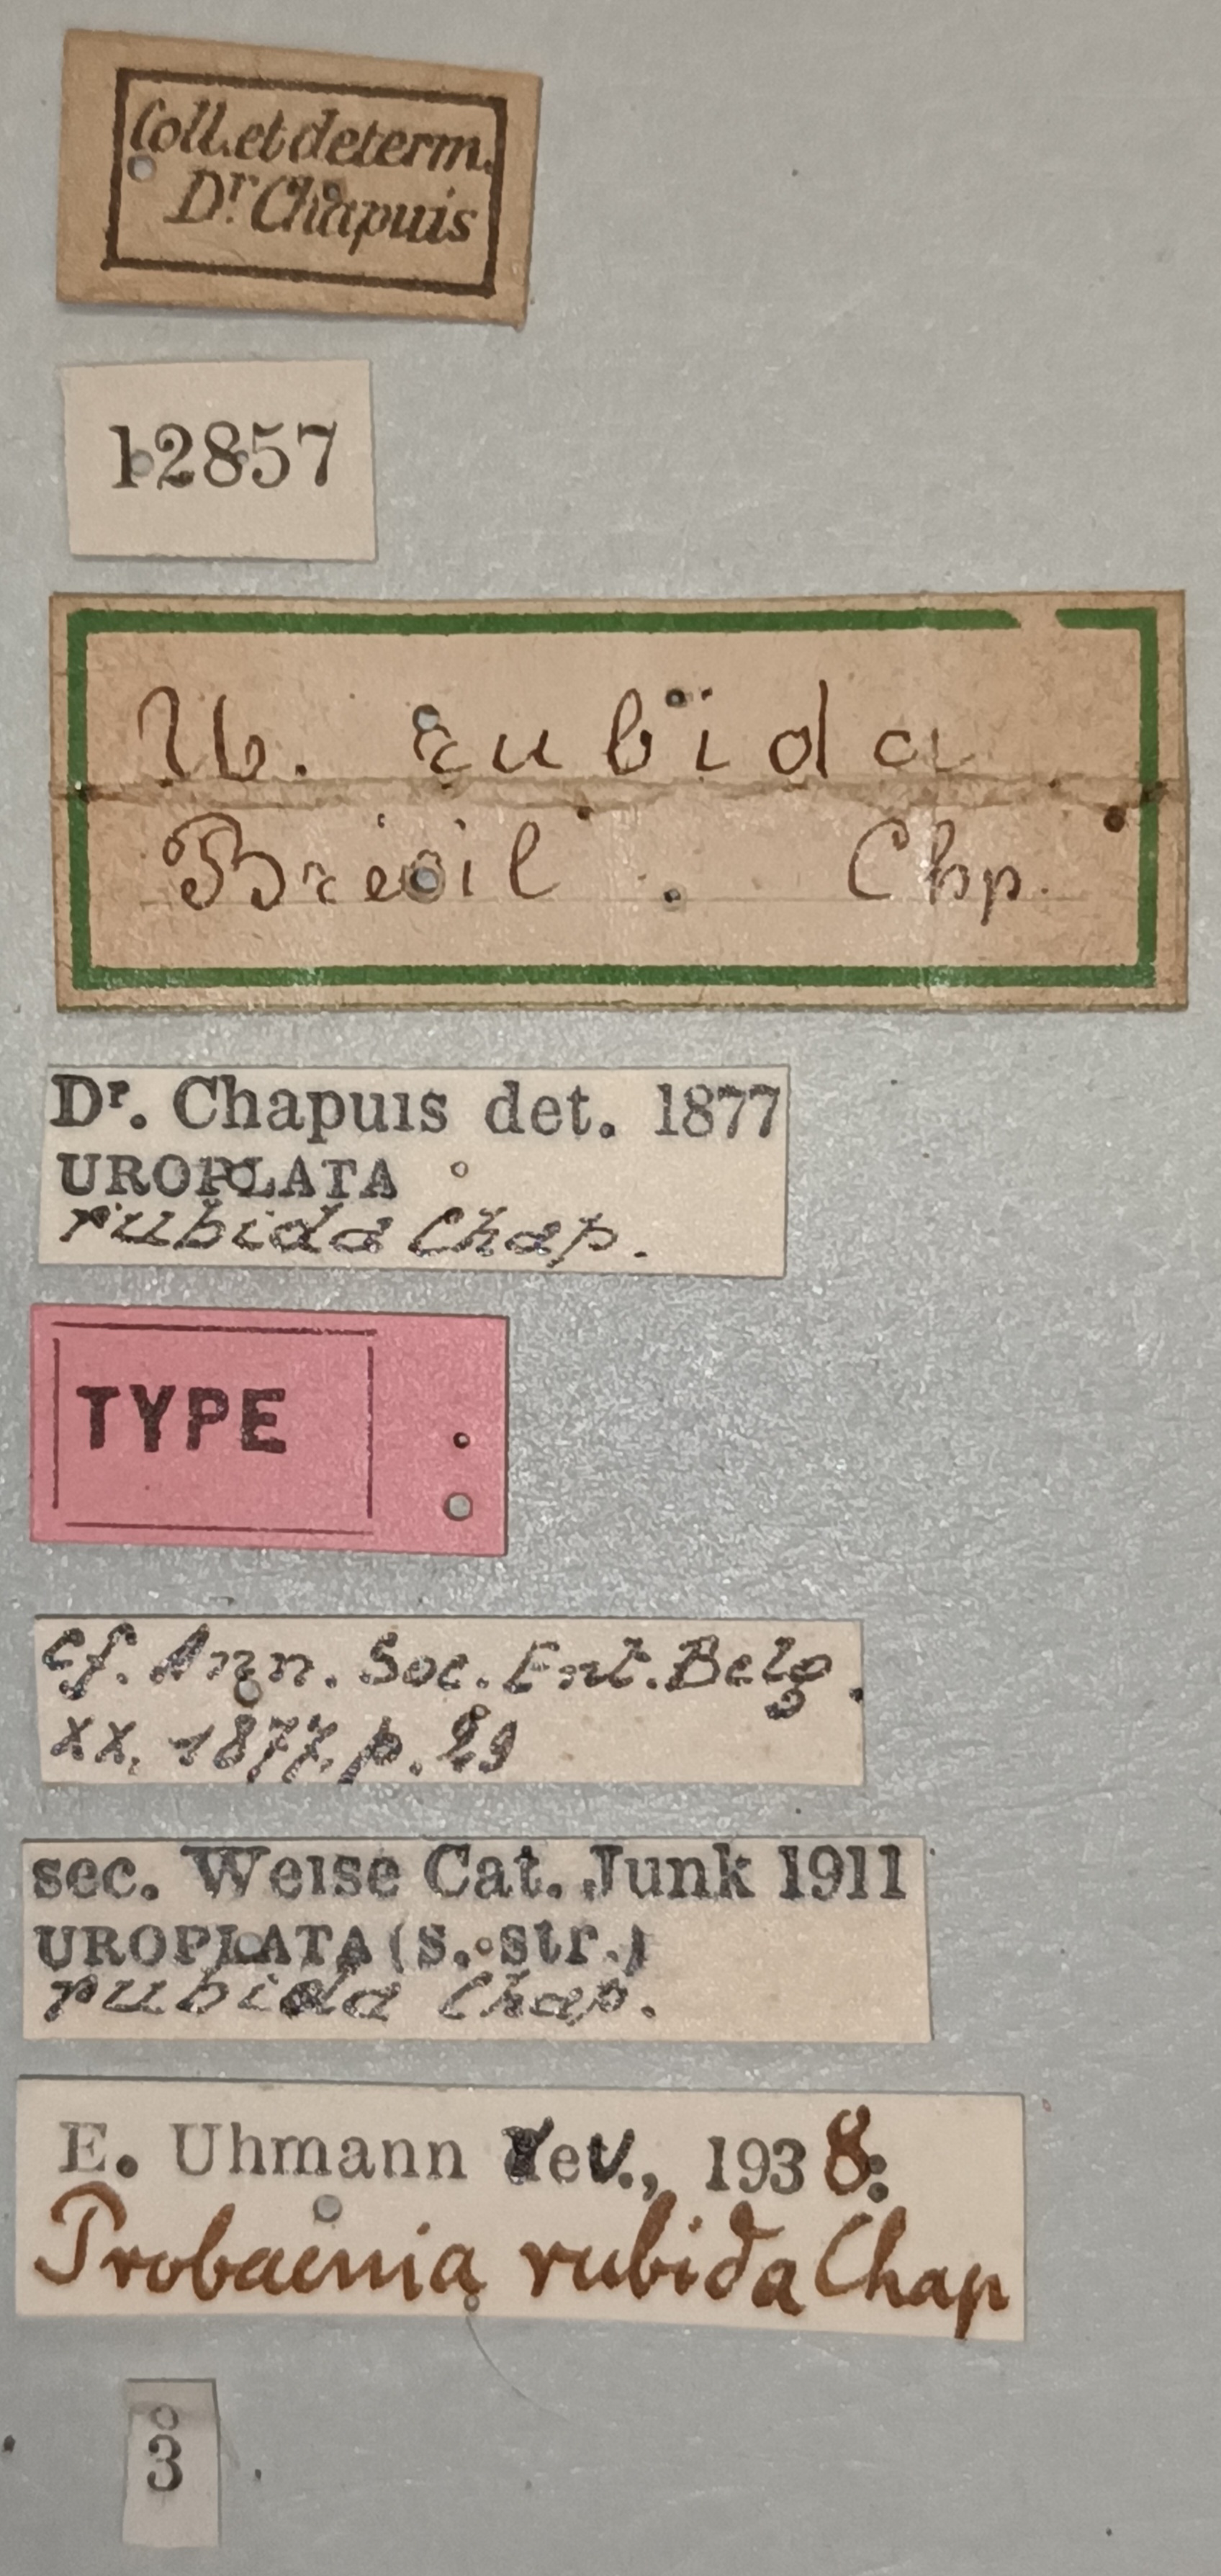 Coll. et determ.
Dr. Chapuis
12857
Ur. rubida
Brésil. Chp.
Dr. Chapuis det. 1877
UROPLATA
rubida Chap.
TYPE
Cf. Ann. Soc. Ent. Belg.
XX, 1877, p. 29
sec. Weise Cat. Junk 1911
UROPLATA (s. str.)
rubida Chap.
E. Uhmann rev., 1938.
Probaenia rubida Chap
3